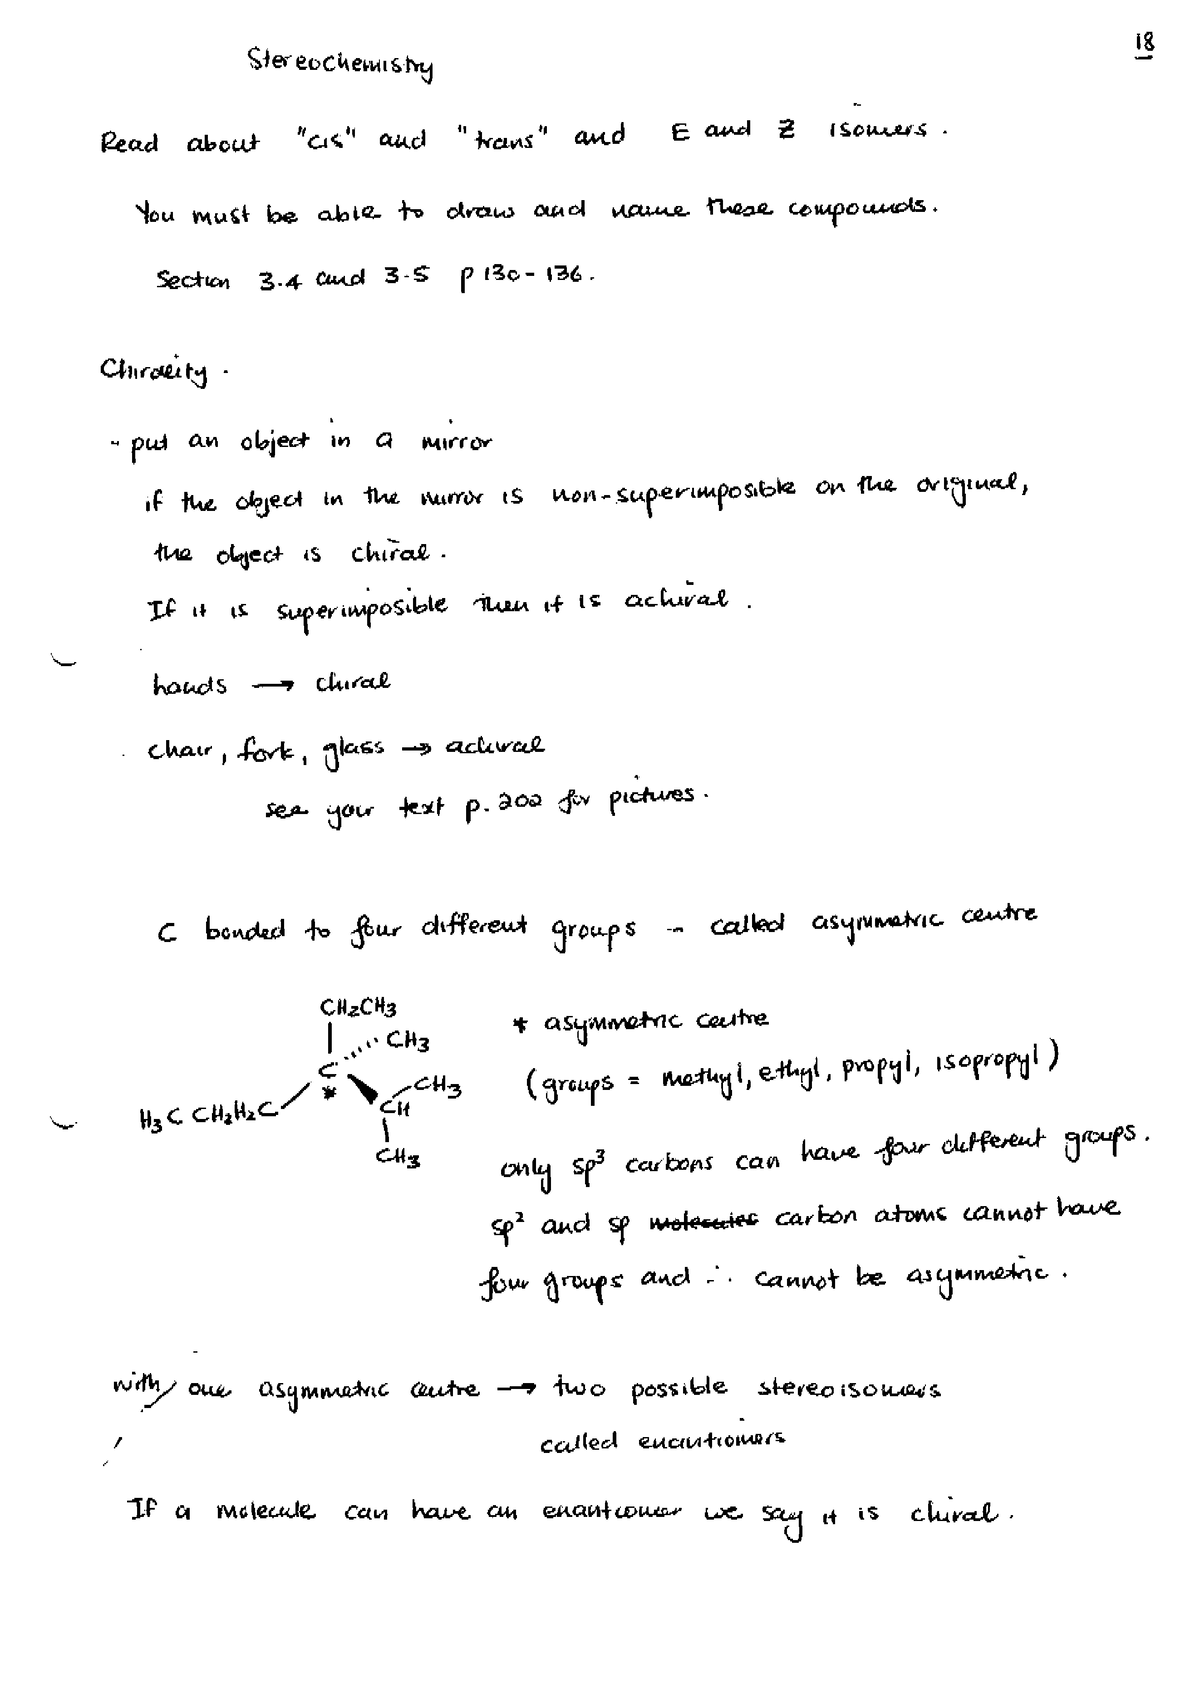 18
Stereochemistry
Read about "cis" and "trans" and E and Z isomers.
You must be able to draw and name these compounds.
Section 3.4 and 3.5 p 130 - 136.
Chirality.
- put an object in a mirror
if the object in the mirror is non-superimposible on the original,
the object is chiral.
If it is superimposible then it is achiral.
hands → chiral
chair, fork, glass → achiral
see your text p. 202 for pictures.
C bonded to four different groups - called asymmetric centre
CH2CH3
CH3
C
*
CH3
H3C CH2H2C
CH
CH3
* asymmetric centre
(groups = methyl, ethyl, propyl, isopropyl)
only sp³ carbons can have four different groups.
sp² and sp molecules carbon atoms cannot have
four groups and ∴ cannot be asymmetric.
with one asymmetric centre → two possible stereoisomers
called enantiomers
If a molecule can have an enantiomer we say it is chiral.